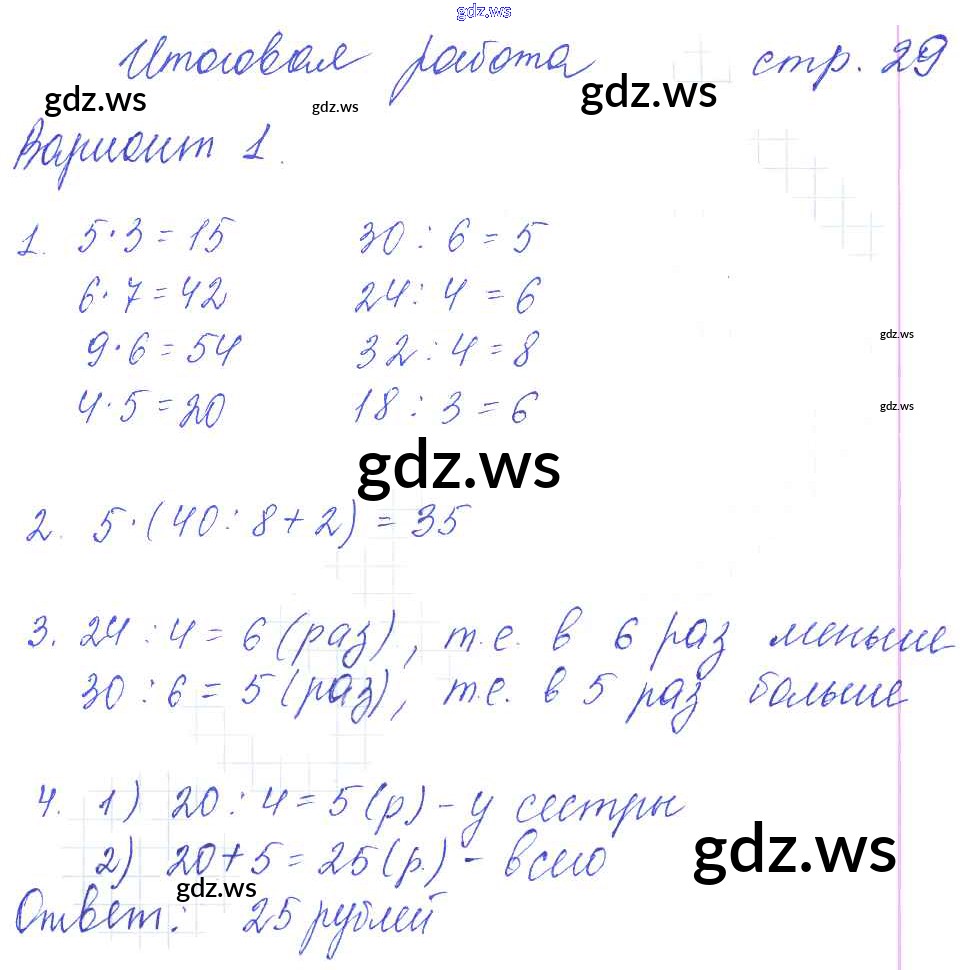 gdz.ws
Итоговая работа стр. 29
gdz.ws gdz.ws gdz.ws
Вариант 1.
1. 5·3=15 30:6=5
6·7=42 24:4=6
gdz.ws
9·6=54 32:4=8
4·5=20 18:3=6
gdz.ws
gdz.ws
2. 5·(40:8+2)=35
3. 24:4=6(раз), т.е. в 6 раз меньше
30:6=5(раз), т.е. в 5 раз больше
4. 1) 20:4=5(р)-у сестры
2) 20+5=25(р.)-всего
gdz.ws
gdz.ws
Ответ: 25 рублей